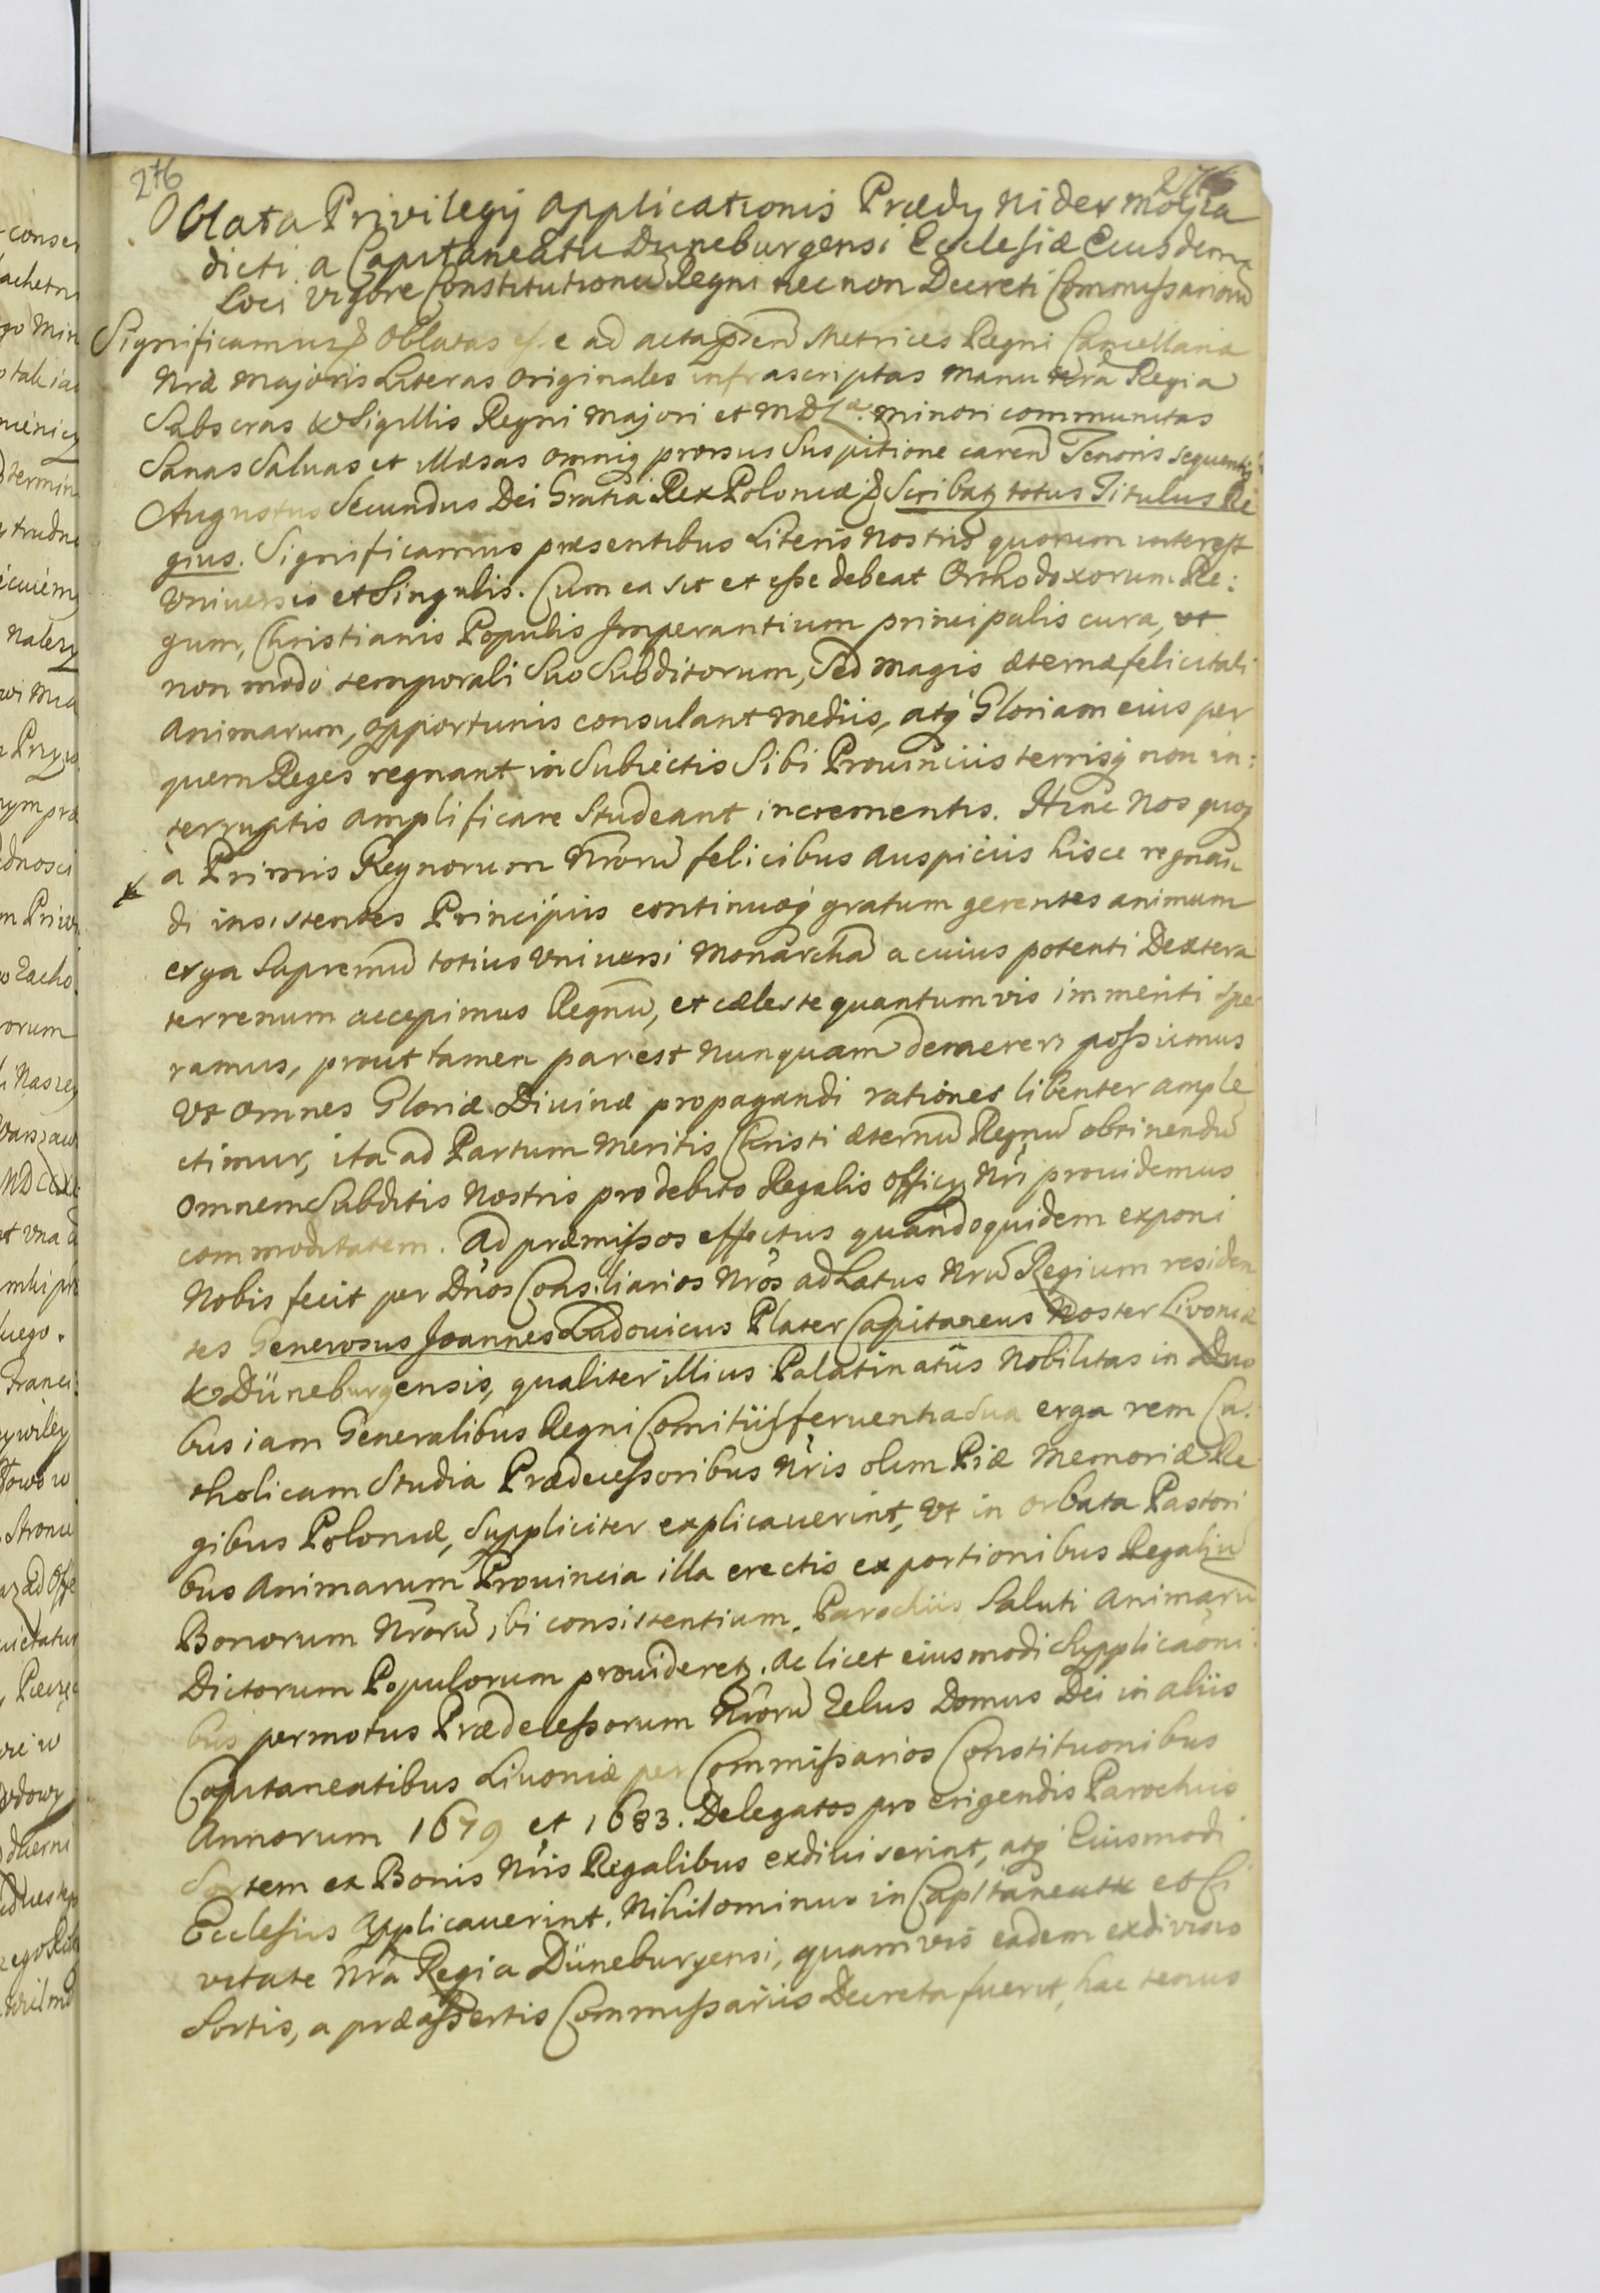 276
276
Oblata Privilegij applicationis Prædij Nidermoyza
dicti a Capitaneatu Duneburgensi Ecclesiæ Eiusdem
Loci vigore Constitutionũ Regni nec non Decreti Commissariorũ
Significamus Oblatas esse ad acta pñ Metrices Regni Cancellariæ
Nræ Majoris Literas Originales infrascriptas manu nrã Regia
Subscras & Sigillis Regni majori et M.D.L. minori communitas
Sanas Saluas et illæsas omniq prorsus Suspitione caren̄ Tenoris sequentis
Augustus Secundus Dei Gratia Rex Poloniæ Scribatz totus Titulus Re
gius. Significamus præsentibus Literis Nostris quorum interest
Vniuersis et Singulis. Cum ea sit et esse debeat Orthodoxorum Re:
gum, Christianis Populis Imperantium principalis cura, ut
non modo temporali Suo Subditorum, Sed magis æternæ felicitati
Animarum, opportunis consulant mediis, atq Gloriam eius per
quem Reges regnant in Subiectis Sibi Prouinciis terrisq non in:
terruptis amplificare Studeant incrementis. Hinc Nos quoq
à Primis Regnorum Nrorũ felicibus auspiciis hisce regnan
di insistentes Principiis continuoq gratum gerentes animum
erga Supremũ totius Vniuersi Monarchã a cuius potenti Dextera
terrenum accepimus Regnũ, et cæleste quantumvis immeriti spe
ramus, prout tamen par est nunquam demereri possumus
Vt omnes Gloriæ Diuinæ propagandi rationes libenter ample
ctimur, ita ad Partum Meritis Christi æternũ Regnũ obtinendũ
omnem Subditis Nostris pro debito Regalis officij Nri prouidemus
commoditatem. Ad præmissos effectus quandoquidem exponi
Nobis fecit per Dños Consiliarios Nrõs ad Latus Nrũ Regium residen
tes Generosus Joannes Ludouicus Plater Capitaneus Noster Livoniæ
& Düneburgensis, qualiter illius Palatinatûs Nobilitas in Duo
bus iam Generalibus Regni Comitiis feruentia Sua erga rem Ca:
tholicam Studia Prædecessoribus Nris olim Piæ Memoriæ Re
gibus Poloniæ, Suppliciter explicauerint, Vt in orbata Pastori
bus Animarum Prouincia illa erectis ex portionibus Regaliũ
Bonorum Nrorũ ibi consistentium, Parochiis Saluti Animarũ
Dictorum Populorum prouideretz. Ac licet eiusmodi Supplicaõni
bus permotus Prædecessorum Nrorũ Zelus Domus Dei in aliis
Capitaneatibus Liuoniæ per Commissarios Constituonibus
Annorum 1679 et 1683. Delegatos pro erigendis Parochiis
Sortem ex Bonis Nris Regalibus exdiuiserint, atq Eiusmodi
Ecclesiis Applicauerint. Nihilominus in Capitaneatu et Ci
vitate Nrã Regia Düneburgensi, quamvis eadem exdivisio
Sortis, a præassertis Commissariis Decreta fuerit, hac tenus